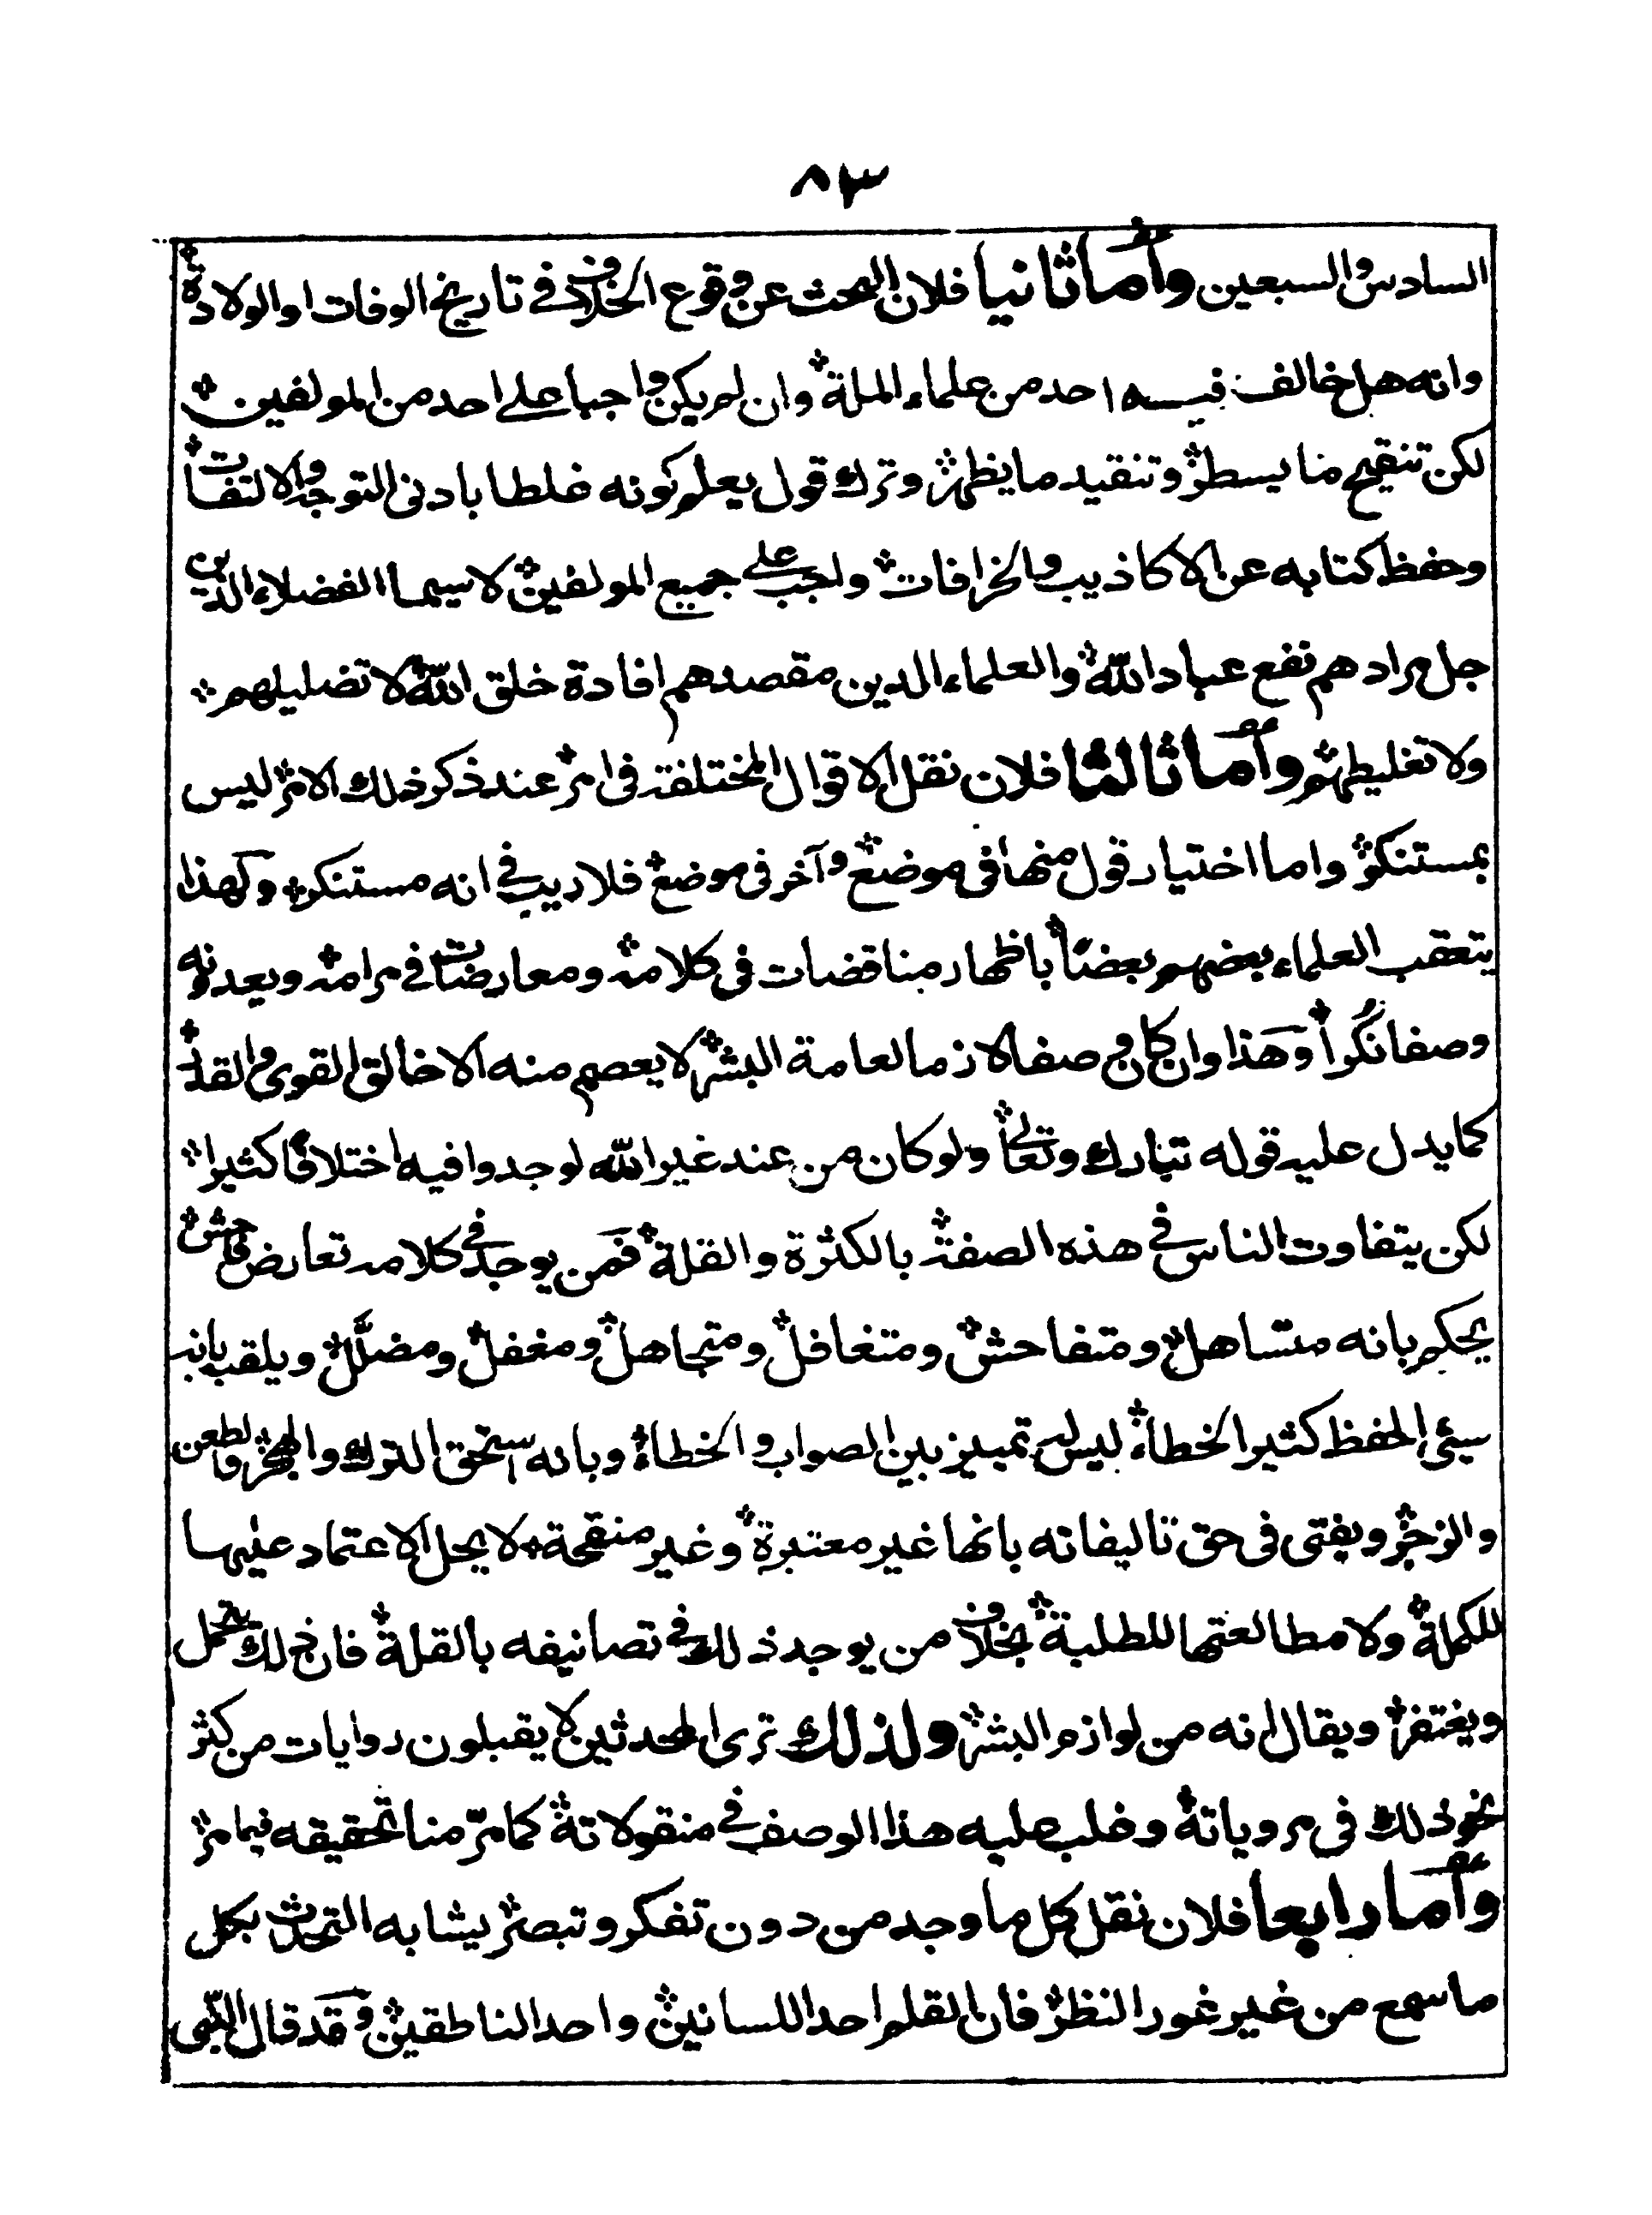 ٨٣
السادس والسبعين وأما ثانيا فلان البحث عن وقوع الخلاف في تاريخ الوفات او الولادة
وانه هل خالف فيه احد من علماء الملة وان لم يكن واجبا على احد من المولفين
لكن تنقيح ما يسطر وتنقيد ما يظهر وترك قول يعلم كونه غلطا بادنى التوجه والالتفات
وحفظ كتابه عن الاكاذيب والخرافات واجب على جميع المولفين لا سيما الفضلاء الذين
جل مرادهم نفع عباد الله والعلماء الذين مقصدهم افادة خلق الله لا تضليلهم
ولا تغليطهم وأما ثالثا فلان نقل الاقوال المختلفة فى امر عند ذكر ذلك الامر ليس
بمستنكر واما اختيار قول منها فى موضع وآخر فى موضع فلا ريب في انه مستنكر وكهذا
يتعقب العلماء بعضهم بعضاً باظهار مناقضات فى كلامه ومعارضات في مرامه ويعدونه
وصفا نكُراً وَهَذا وان كان وصفا لازما لعامة البشر لا يعصم منه الا خالق القوى والقدر
كما يدل عليه قوله تبارك وتعالى ولو كان من عند غير الله لوجدوا فيه اختلافًا كثيرا
لكن يتفاوت الناس في هذه الصفة بالكثرة والقلة فمَن يوجد في كلامه تعارض فاحش
يحكم بانه متساهل ومتفاحش ومتغافل ومتجاهل ومغفل ومضلل ويلقب بانه
سيئ الحفظ كثير الخطاء ليس له تميز بين الصواب والخطاء وبانه استحق الترك والهجر والطعن
والزجر ويفتى فى حق تاليفاته بانها غير معتبرة وغير منقحة لا يحل الاعتماد عليها
للكملة ولا مطالعتها للطلبة بخلاف من يوجد ذلك في تصانيفه بالقلة فان ذلك يتحمل
ويغتفر ويقال انه من لوازم البشر ولذلك ترى المحدثين لا يقبلون روايات من كثر
نحو ذلك فى مروياته وغلب عليه هذا الوصف في منقولاته كما مرّ منا تحقيقه فيما مر
وأما رابعا فلان نقل كل ما وجد من دون تفكر وتبصر يشابه التحدث بكل
ما سمع من غير غور النظر فان القلم احد اللسانين واحد الناطقين وقد قال النبى